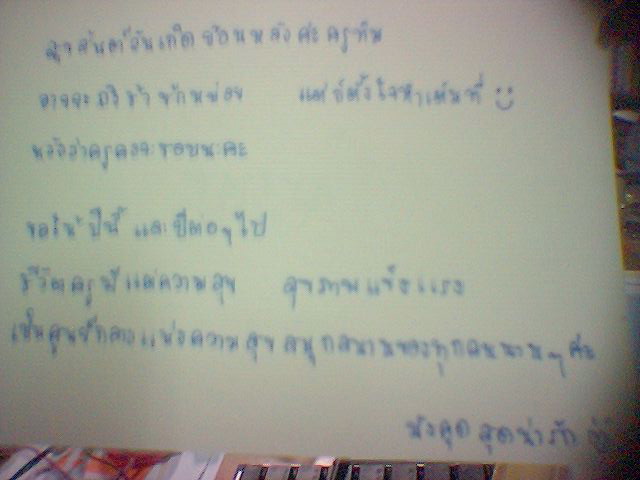 สุขสันต์วันเกิดย้อนหลังค่ะครูทิม
อาจจะถึงช้าซักหน่อย แต่ตั้งใจทำเต็มที่ :)
หวังว่าครูคงจะชอบนะคะ
ขอให้ปีนี้ และปีต่อๆไป
ชีวิตครูมีแต่ความสุข สุขภาพแข็งแรง
เป็นศูนย์กลางแห่งความสุขสนุกสนานของทุกคนนานๆค่ะ
มังคุดสุดน่ารัก